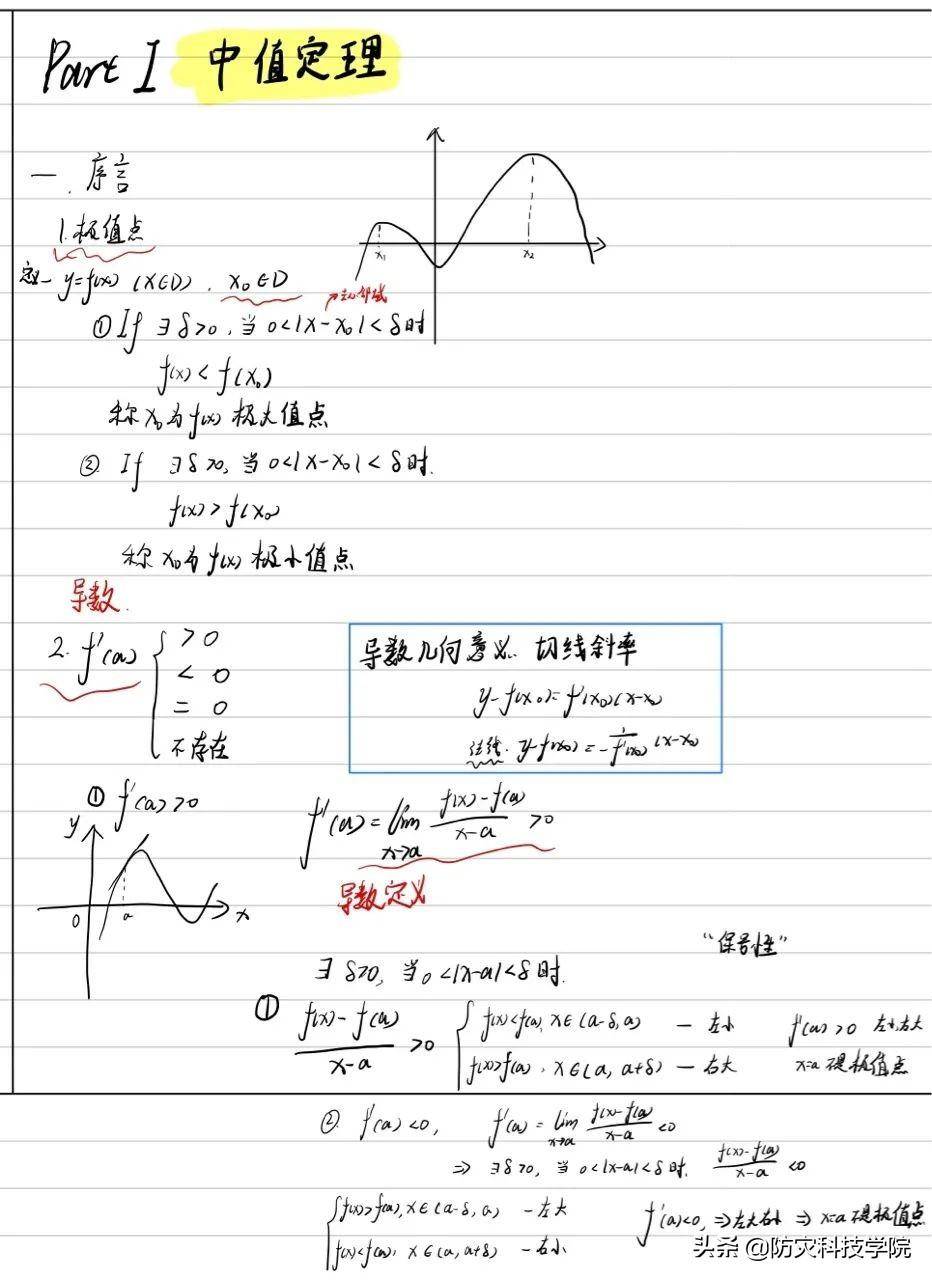 Part I 中值定理
一. 序言
1.极值点
x₁
x₂
定— y=f(x) (x∈D), x₀∈D
去心邻域
①If ∃δ>0, 当 0<|x-x₀|<δ时
f(x)<f(x₀)
称x₀为f(x)极大值点
② If ∃δ>0, 当 0<|x-x₀|<δ时.
f(x)>f(x₀)
称x₀为f(x)极小值点
导数.
2. f'(a) { >0
<0
=0
不存在
导数几何意义. 切线斜率
y-f(x₀)=f'(x₀)(x-x₀)
法线. y-f(x₀)=-1/f'(x₀) (x-x₀)
① f'(a)>0
y
0 a x
f'(a)=lim x→a (f(x)-f(a))/(x-a) >0
导数定义
"保号性"
∃ δ>0, 当0<|x-a|<δ时.
① (f(x)-f(a))/(x-a) >0 { f(x)<f(a), x∈(a-δ,a) — 左小 f'(a)>0 左小右大
f(x)>f(a), x∈(a, a+δ) — 右大 x=a不是极值点
② f'(a)<0, f'(a)=lim x→a (f(x)-f(a))/(x-a) <0
⇒ ∃δ>0, 当 0<|x-a|<δ时. (f(x)-f(a))/(x-a) <0
{ f(x)>f(a), x∈(a-δ,a) —左大 f'(a)<0, ⇒左大右小 ⇒ x=a不是极值点
f(x)<f(a), x∈(a,a+δ) —右小
头条 @防灾科技学院